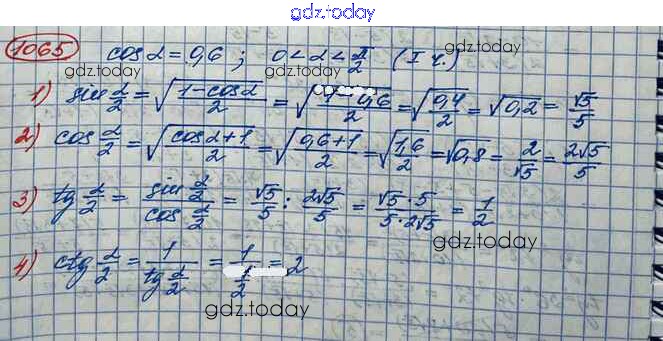 gdz.today
1065 cos α = 0,6 ; 0 < α < π/2 (I ч.)
gdz.today gdz.today
1) sin α/2 = √((1 - cos α)/2) = √((1 - 0,6)/2) = √(0,4/2) = √0,2 = √5/5
2) cos α/2 = √((cos α + 1)/2) = √((0,6 + 1)/2) = √(1,6/2) = √0,8 = 2/√5 = 2√5/5
gdz.today gdz.today
3) tg α/2 = (sin α/2)/(cos α/2) = √5/5 : 2√5/5 = (√5 · 5)/(5 · 2√5) = 1/2
gdz.today
4) ctg α/2 = 1/(tg α/2) = 1/(1/2) = 2
gdz.today